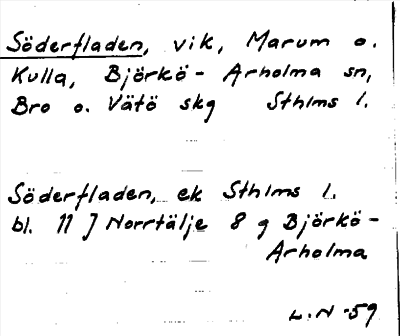 Söderfladen, vik, Marum o.
Kulla, Björkö- Arholma sn,
Bro o. Vätö skg Sthlms l.
Söderfladen, ek Sthlms l.
bl. 11 J Norrtälje 8 g Björkö-
Arholma
L.N -59